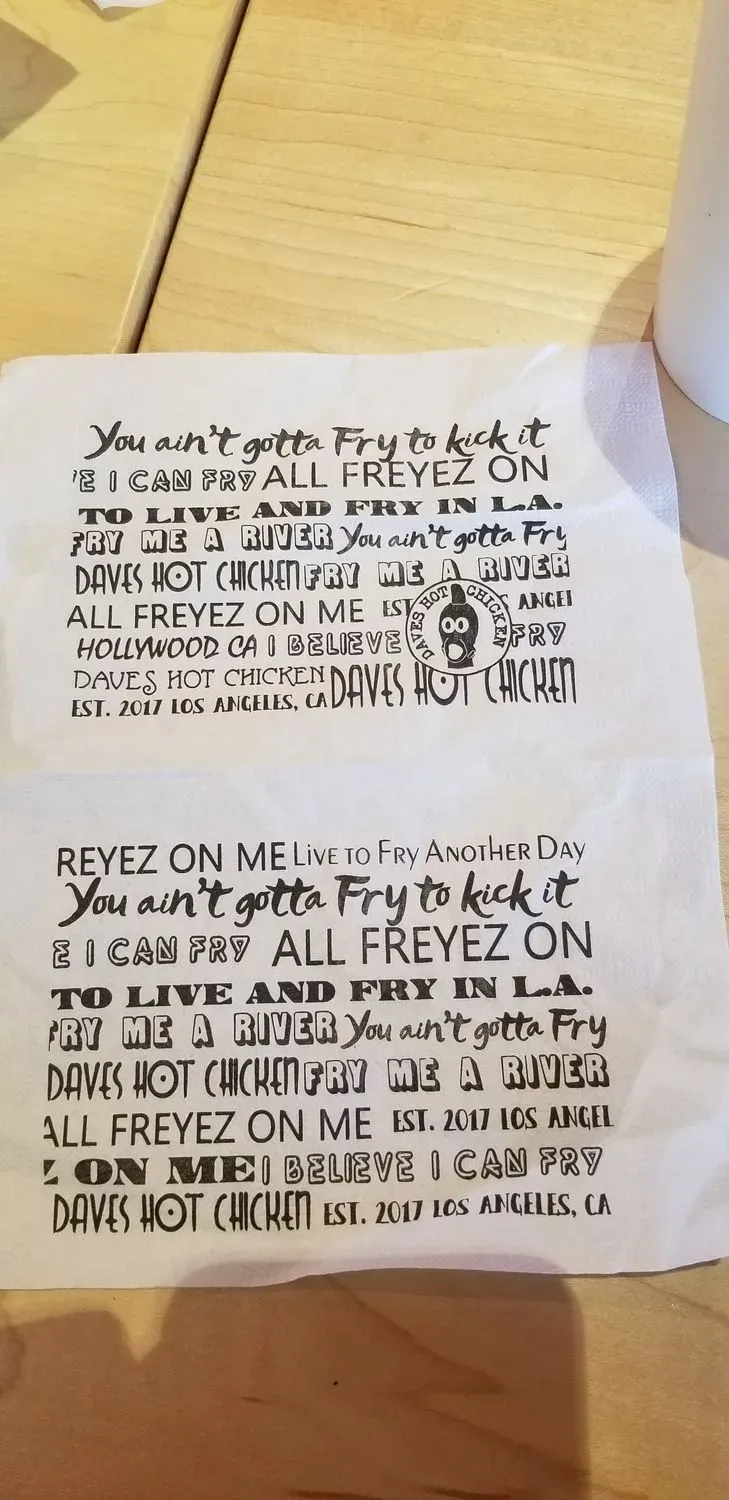 You ain't gotta Fry to kick it
'E I CAN FRY ALL FREYEZ ON
TO LIVE AND FRY IN L.A.
FRY ME A RIVER You ain't gotta Fry
DAVES HOT CHICKEN FRY ME A RIVER
ALL FREYEZ ON ME EST S ANGEL
HOLLYWOOD CA I BELIEVE FRY
DAVES HOT CHICKEN
DAVES HOT CHICKEN DAVES HOT CHICKEN
EST. 2017 LOS ANGELES, CA
REYEZ ON ME LIVE TO FRY ANOTHER DAY
You ain't gotta Fry to kick it
E I CAN FRY ALL FREYEZ ON
TO LIVE AND FRY IN L.A.
FRY ME A RIVER You ain't gotta Fry
DAVES HOT CHICKEN FRY ME A RIVER
ALL FREYEZ ON ME EST. 2017 LOS ANGEL
Z ON ME I BELIEVE I CAN FRY
DAVES HOT CHICKEN EST. 2017 LOS ANGELES, CA